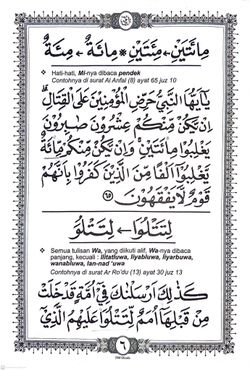 مِائَتَيْنِ ← مِئَتَيْنِ * مِائَةٌ ← مِئَةٌ
❖ Hati-hati, Mi-nya dibaca pendek
Contohnya di surat Al Anfal (8) ayat 65 juz 10
يَٰٓأَيُّهَا ٱلنَّبِيُّ حَرِّضِ ٱلْمُؤْمِنِينَ عَلَى ٱلْقِتَالِ ۚ
إِن يَكُن مِّنكُمْ عِشْرُونَ صَٰبِرُونَ
يَغْلِبُوا۟ مِا۟ئَتَيْنِ ۚ وَإِن يَكُن مِّنكُم مِّا۟ئَةٌ
يَغْلِبُوٓا۟ أَلْفًا مِّنَ ٱلَّذِينَ كَفَرُوا۟ بِأَنَّهُمْ
قَوْمٌ لَّا يَفْقَهُونَ ٦٥
لِتَتْلُوَا۟ ← لِتَتْلُوَ
❖ Semua tulisan Wa, yang diikuti alif. Wa-nya dibaca
panjang, kecuali : litatluwa, liyabluwa, liyarbuwa,
wanabluwa, lan-nad 'uwa
Contohnya di surat Ar Ro'du (13) ayat 30 juz 13
كَذَٰلِكَ أَرْسَلْنَٰكَ فِىٓ أُمَّةٍ قَدْ خَلَتْ
مِن قَبْلِهَآ أُمَمٌ لِّتَتْلُوَا۟ عَلَيْهِمُ ٱلَّذِىٓ
٦